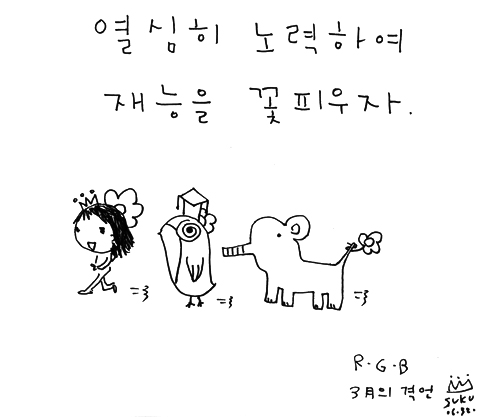 열심히 노력하여
재능을 꽃피우자.
R·G·B
3월의 격언
SUKU